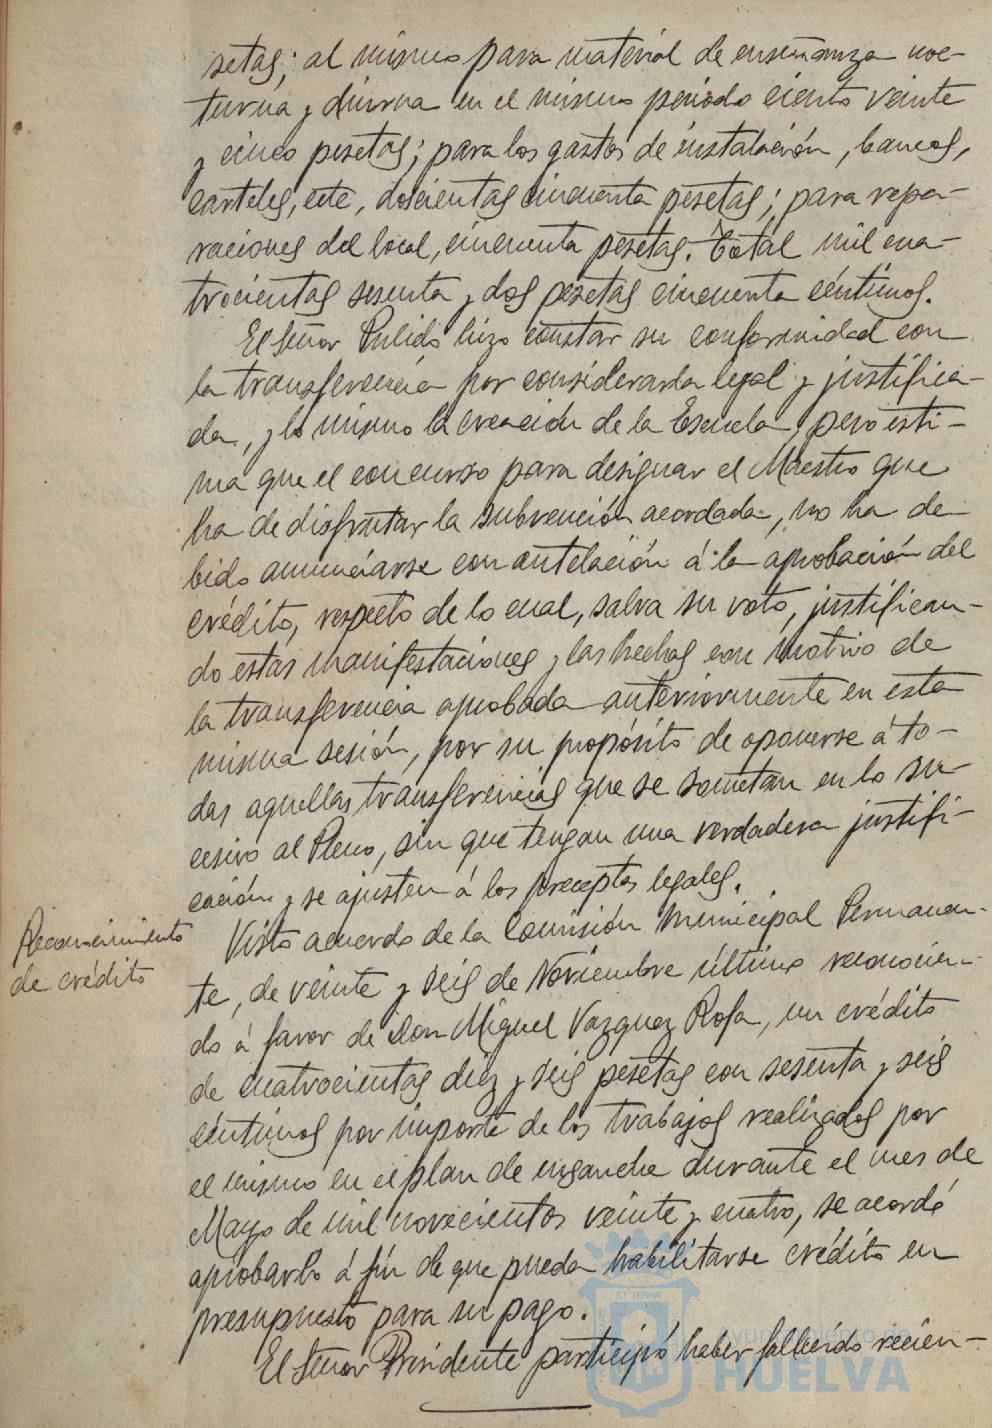 setas; al mismo para material de enseñanza noc-
turna y diurna en el mismo periodo ciento veinte
y cinco pesetas; para los gastos de instalación, bancos,
carteles, etc, doscientas cincuenta pesetas; para repa-
raciones del local, cincuenta pesetas. Total mil cua-
trocientas sesenta y dos pesetas cincuenta céntimos.
El Señor Pulido hizo constar su conformidad con
la transferencia por considerarla legal y justifica-
da, y lo mismo la creación de la Escuela, pero esti-
ma que el concurso para designar el Maestro que
ha de disfrutar la subvención acordada, no ha de-
bido anunciarse con antelación á la aprobación del
crédito, respecto de lo cual, salva su voto, justifican-
do estas manifestaciones y las hechas con motivo de
la transferencia aprobada anteriormente en esta
misma sesión, por su propósito de oponerse á to-
das aquellas transferencias que se sometan en lo su-
cesivo al Pleno, sin que tengan una verdadera justifi-
cación y se ajusten á los preceptos legales.
Reconocimiento
de crédito
Visto acuerdo de la Comisión Municipal Permanen-
te, de veinte y seis de Noviembre último reconocien-
do á favor de Don Miguel Vazquez Rofa, un crédito
de cuatrocientas diez y seis pesetas con sesenta y seis
céntimos por importe de los trabajos realizados por
el mismo en el plan de enganche durante el mes de
Mayo de mil novecientos veinte y cuatro, se acordó
aprobarlo á fin de que pueda habilitarse crédito en
presupuesto para su pago.
El Señor Presidente participó haber fallecido recien-
Ayuntamiento de
HUELVA